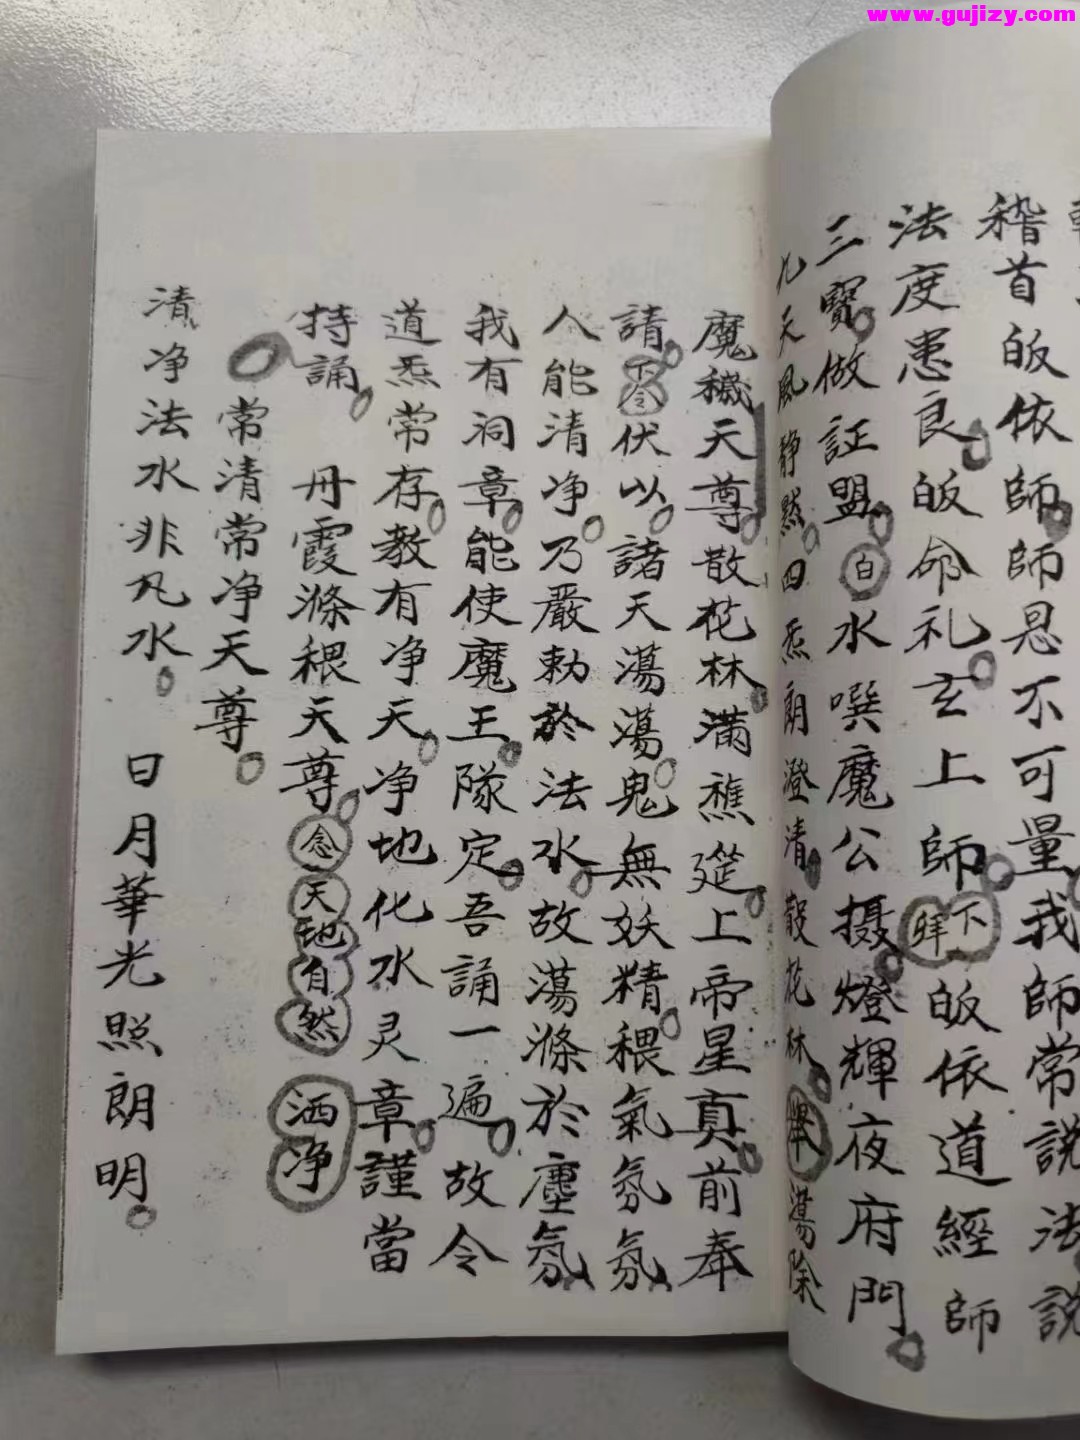 www.gujizy.com
稽首皈依師師恩不可量我師常説法説
法度患良皈命礼玄上師下拜皈依道經師
三寶做証盟白水噀魔公摄燈輝夜府門
九天風静黙四炁朗澄清散花林舉蕩除
魔穢天尊散花林满醮筵上帝星真前奉
請下令伏以諸天蕩蕩鬼無妖精穢氣氛氛
人能清净乃嚴勅於法水故蕩滌於塵氛
我有洞章能使魔王隊定吾誦一遍故令
道炁常存教有净天净地化水灵章謹當
持誦丹霞滌穢天尊念天地自然洒净
常清常净天尊
清净法水非凡水日月華光照朗明